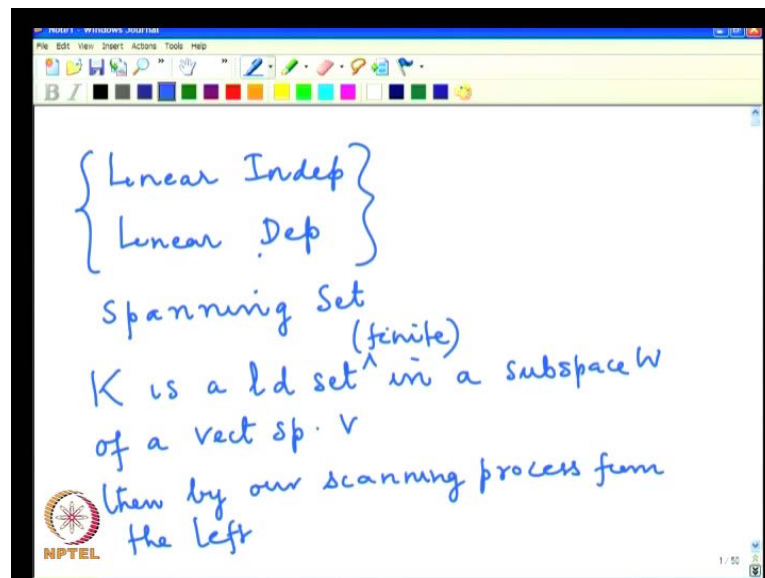 Note1 - Windows Journal
File Edit View Insert Actions Tools Help
B I
Linear Indep
Linear Dep
Spanning Set
(finite)
K is a ld set ^ in a subspace W
of a vect sp. V
then by our scanning process from
the left
NPTEL
1 / 50